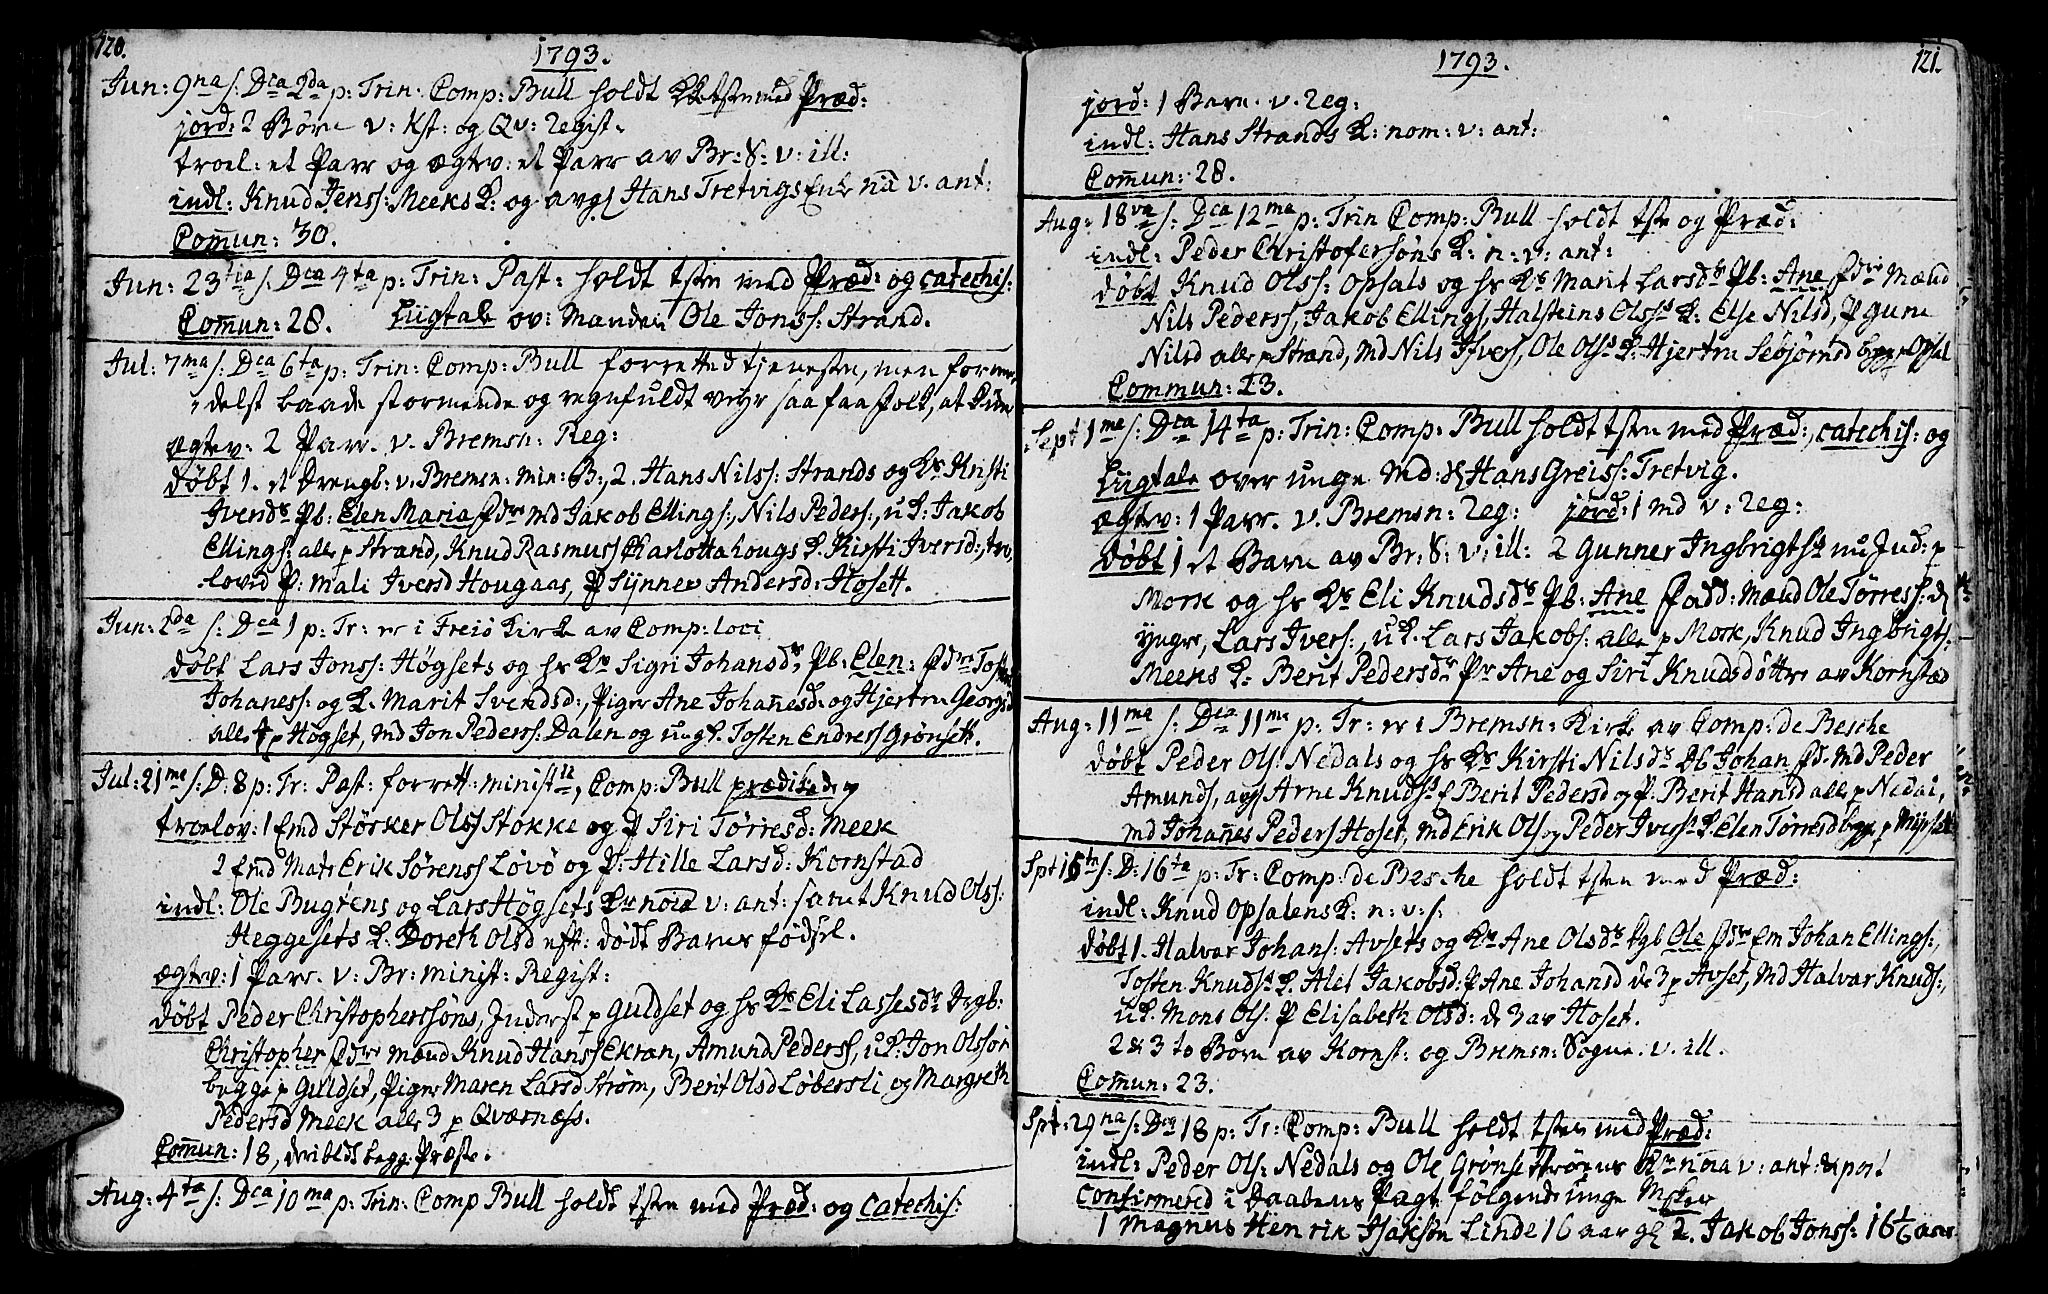 120.
1793.
Jun: 9na s: Dca 2da p: Trin: Comp: Bull holdt med Præd:
jord: 2 Børn v: Kst: og Qv: Regist.
troel: et Parr og ægtev: et Parr av Br: S: v: ill:
indl: Knud Jenss: Meeks K: og avgs Hans Tretvigs Enk nia v. ant:
Com̄un: 30.
Jun: 23tia s: Dca 4ta p: Trin: Past: holdt tsten med Præd: og catechis:
Com̄un: 28. Liigtale ov: Manden Ole Jonss: Strand.
Jul: 7ma s: Dca 6ta p: Trin: Comp: Bull forretted tjenesten, men for
delst baade stormende og regnfuldt veyr saa faa folk, at
ægtev: 2 Parr. v. Bremsn: Reg:
døbt 1. et Drengb: v. Bremsn: min: B:, 2. Hans Nilss: Strands og Kr Kristi
Iversdr Pb: Elen Maria Fdre md Jakob Ellings:, Nils Peders:, uK: Jakob
Ellings: alle p Strand, Knud Rasmuss Charlottahougs K. Kirsti Iversd:, tro,
lovid P: Mali Iversd Hougaas, P Synnev Andersd: Hosett.
Jun: 2da s: Dca 1 p: Tr: er i Freiø Kirke av Comp: loci
døbt Lars Jonss: Høgsets og hs Kr Sigri Johansdr, Pb: Elen: Fdre Tosten
Johaness: og K. Marit Svendsd:, Piger Ane Johan̄esd: og Hjertru Georgsd
alle p Høgset, md Jon Pederss: Dalen og ungk. Tosten Endress Grønsett.
Jul: 21ma s: D: 8 p: Tr: Past: forrett: minist, Comp: Bull prædiked, og
troelov: 1 Emd Størker Olss Stokke og P Siri Tørresd: Meek
2 Emd Mats Erik Sørenss Løvø og P: Hille Larsd: Kornstad
indl: Ole Bugtens og Lars Høgsets Kr noia v: ant: samt Knud Olss:
Heggesets K. Doreth Olsd eft: dødt Barns fødsel.
ægtev: 1 Parr. v: Br: minist: Regist:
døbt Peder Christopherssøns, Inderst p Guldset og hs Kr Eli Lassesdr Drgb:
Christopher Fdre mænd Knud Hanss Ekran, Amund Pederss, uK: Jon Olssøn
begge p Guldset, Piger Maren Larsd Strøm, Berit Olsd Løbersli og Margreth
Pedersd Meek alle 3 p Qværnæss.
Com̄un: 18, betjent begge Præste.
Aug: 4ta s: Dca 10ma p: Trin: Comp Bull holdt tsten med Præd: og catechis:
1793.
121.
jord: 1 Barn. v. Reg:
indl: Hans Strands K: nom: v: ant:
Com̄un: 28.
Aug: 18va s: Dca 12ma p: Trin Comp: Bull holdt tste og Præd:
indl: Peder Christofersøns K: n: v: ant:
døbt Knud Olss: Opsals og hs Kr Marit Larsdr Pb: Ane Fdre Mænd
Nils Pederss, Jakob Ellings, Halsteins Olss K: Else Nilsd, P Gunn
Nilsd alle p Strand, md Nils Iverss, Ole Olss K: Hjertru Sebjørnsd begge p Opsal
Commun: 13.
Sept 1ma s: Dca 14ta p: Trin: Comp: Bull holdt tsten med Præd:, catechis: og
Liigtale over unge Md: Hans Greiss: Tretvig.
ægtev: 1 Parr. v. Bremsn: Reg: jord: 1 md v: Reg:
døbt 1 et Barn av Br: S: v: ill: 2 Gunner Ingbrigts nu Ind: p
Mork og hs Kr Eli Knudsdr Pb: Ane Fadd: Mænd Ole Tørress: d
yngre, Lars Ivers:, uK. Lars Jakobs: alle p Mork, Knud Ingbrigts:
Meeks K: Berit Pedersdr Pr Ane og Siri Knudsdøttre av Kornstad
Aug: 11ma s: Dca 11ma p: Tr: er i Bremsn: Kirke av Comp: de Besche
døbt Peder Ols: Nedals og hs Kr Kirsti Nilsdr Db Johan Fd. Md Peder
Amunds, avgs Arne Knuds E Berit Pedersd og P: Berit Hansd alle p Nedal,
md Johan̄es Peders Hoset, md Erik Ols og Peder Ivers K. Elen Tørresd begge p
Spt 15ta s: D: 16ta p: Tr: Comp: de Besche holdt tsten med Præd:
indl: Knud Opsalens K: n: v: s:
døbt 1. Halvar Johans: Avsets og Kr Ane Olsdr Pgb Ole Fdre Em Johan Ellings:,
Tosten Knuds K. Alet Jakobsd: P Ane Johansd de 3 p Avset, Md Halvar Knuds:,
uK. Mons Ols: P Elisabeth Olsd: de 3 av Hoset.
2 & 3 to Børn av Kornst: og Bremsn: Sogne. v. ill.
Com̄un: 23.
Spt: 29na s: Dca 18 p: Tr: Comp: Bull holdt tsten med Præd:
indl: Peder Ols: Nedals og Ole Grønset Kr noia v: ant: & post
Confirmered i Daabens Pagt følgende unge Msker
1 Magnus Henrik Isaksøn Linde 16 aar gl 2. Jakob Jonss: 16½ aar